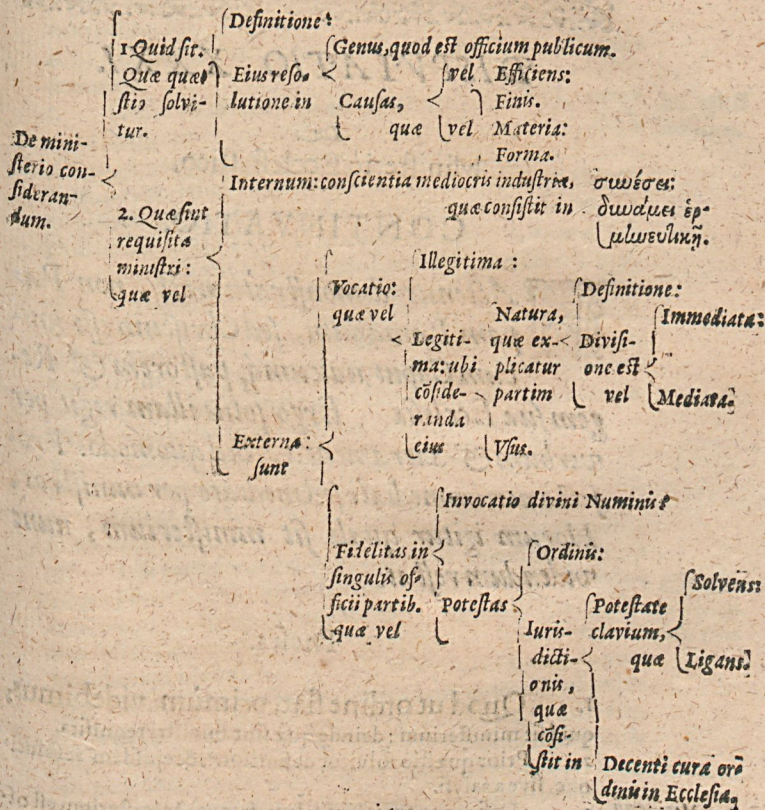 De mini-
sterio con-
sideran-
dum.
1 Quid sit.
Quæ quæ-
stio solvi-
tur.
Definitione:
Eius reso-
lutione in
Genus, quod est officium publicum.
Causas,
quæ
vel Efficiens:
Finis.
vel Materia:
Forma.
2. Quæ sint
requisita
ministri:
quæ vel
Internum: conscientia mediocris industriæ,
quæ consistit in
συνέσει:
δυνάμει ἑρ-
μηνευτικῇ.
Externa:
sunt
Vocatio:
quæ vel
Illegitima:
Legiti-
ma: ubi
cõside-
randa
eius
Natura,
quæ ex-
plicatur
partim
Definitione:
Divisi-
one est
vel
Immediata:
Mediata.
Vsus.
Fidelitas in
singulis of-
ficii partib.
quæ vel
Invocatio divini Numinis:
Potestas
Ordinis:
Iuris-
dicti-
onis,
quæ
cõsi-
stit in
Potestate
clavium,
quæ
Solvens:
Ligans.
Decenti cura or-
dinis in Ecclesia.